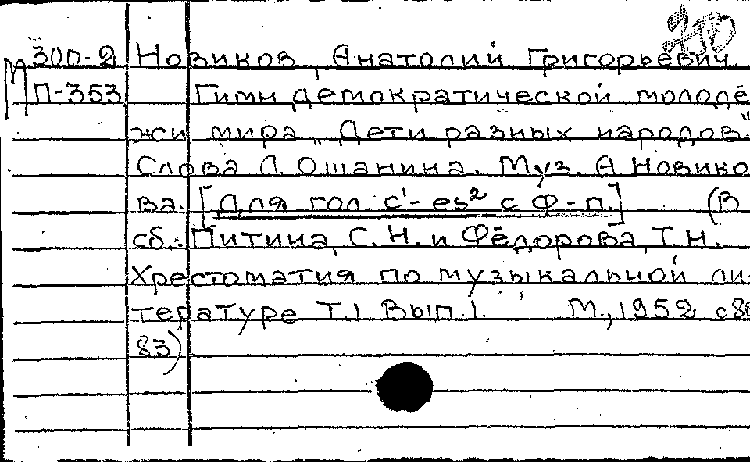 210
30п-2 Новиков, Анатолий Григорьевич.
М П-353 Гимн демократической молодё
жи мира „Дети разных народов"
Слова Л. Ошанина. Муз. А. Новико
ва. [Для гол. c¹-es² с ф-п.] (В
сб.: Питина, С.Н. и Фёдорова, Т.Н.
Хрестоматия по музыкальной ли-
тературе Т.1 Вып.1. М., 1952 с80
83)